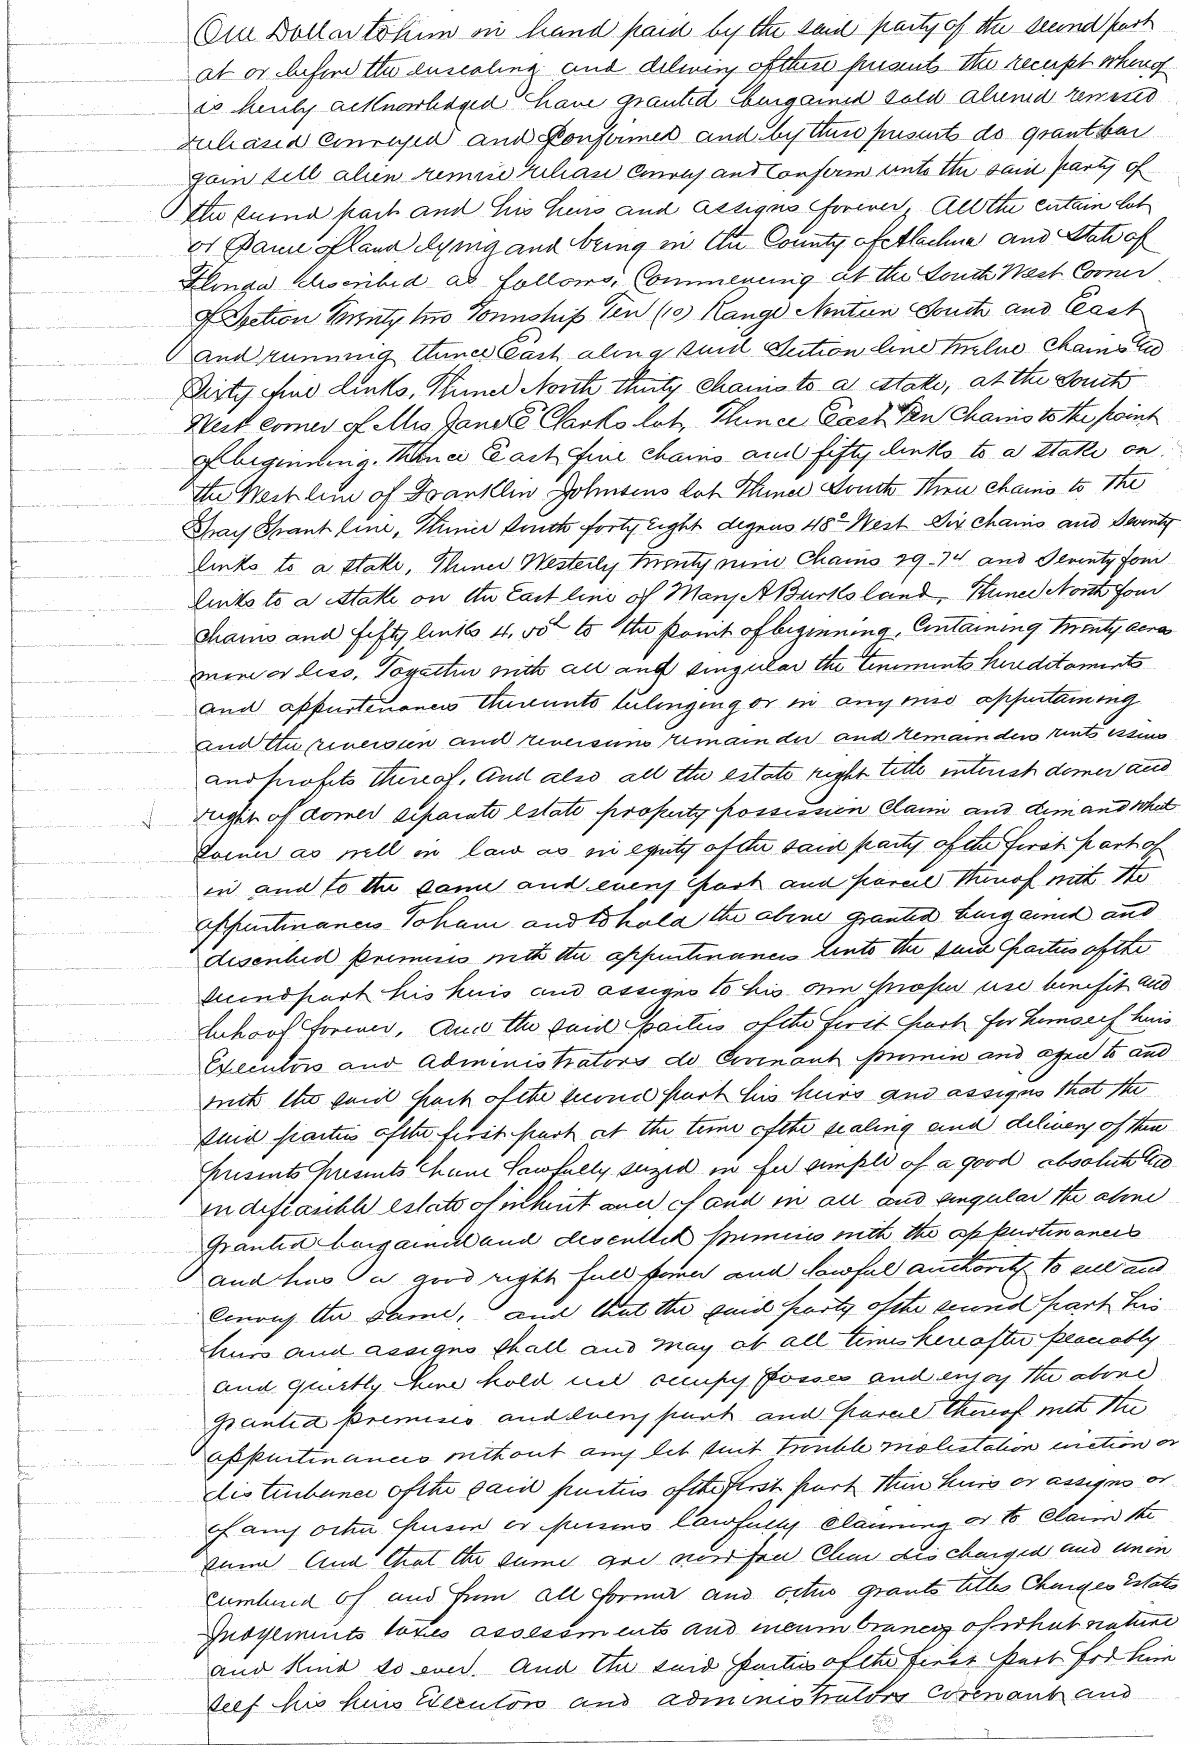 One Dollar to him in hand paid by the said party of the second part
at or before the ensealing and delivery of these presents the receipt whereof
is hereby acknowledged have granted bargained sold aliened remised
released conveyed and Confirmed and by these presents do grant bar
gain sell alien remise release convey and confirm unto the said party of
the second part and his heirs and assigns forever, All the certain lot
or Parcel of land lying and being in the County of Alachua and State of
Florida described as follows, Commencing at the South West Corner
of Section Twenty two Township Ten (10) Range Nineteen South and East
and running thence East along said Section line twelve chains and
Sixty five links, Thence North thirty chains to a stake, at the South
West corner of Mrs Jane E Clarks lot, Thence East Ten Chains to the point
of beginning. Thence East five chains and fifty links to a stake on
the West line of Franklin Johnsens lot Thence South three chains to the
Gray Grant line, Thence South forty Eight degrees 48° West Six chains and Seventy
links to a stake, Thence Westerly Twenty nine Chains 29.74 and Seventy four
links to a stake on the East line of Mary A Burks land, Thence North four
chains and fifty links 4,50 to the point of beginning, Containing twenty acres
more or less, Together with all and singular the tenements hereditaments
and appurtenances thereunto belonging or in any wise appertaining
and the reversion and reversions remainder and remainders rents issues
and profits thereof, And also all the estate right title interest dower and
right of dower separate estate property possession Claim and demand what
soever as well in law as in equity of the said party of the first part of
in and to the same and every part and parcel thereof with the
appurtinances To have and to hold the above granted bargained and
described premises with the appurtinances unto the said parties of the
second part his heirs and assigns to his own proper use benefit and
behoof forever, And the said parties of the first part for himself heirs
Executors and administrators do Covenant promise and agree to and
with the said part of the second part his heirs and assigns that the
said parties of the first part at the time of the sealing and delivery of these
presents presents have lawfully seized in fee simple of a good absolute and
indefeasible estate of inherit ance of and in all and singular the above
granted bargained and described premises with the appurtinances
and has a good right full power and lawful authority to sell and
convey the same, and that the said party of the second part his
heirs and assigns shall and may at all times hereafter peaceably
and quietly have hold use occupy posses and enjoy the above
granted premises and every part and parcel thereof with the
appurtinances without any let suit trouble molestation eviction or
disturbance of the said parties of the first part their heirs or assigns or
of any other person or persons lawfully claiming or to claim the
same And that the same are now free Clear discharged and unin
cumbered of and from all former and other grants titles Charges Estates
Judgements taxes assessments and incumbrances of what nature
and kind so ever. And the said parties of the first part for him
self his heirs Executors and administrators covenant and